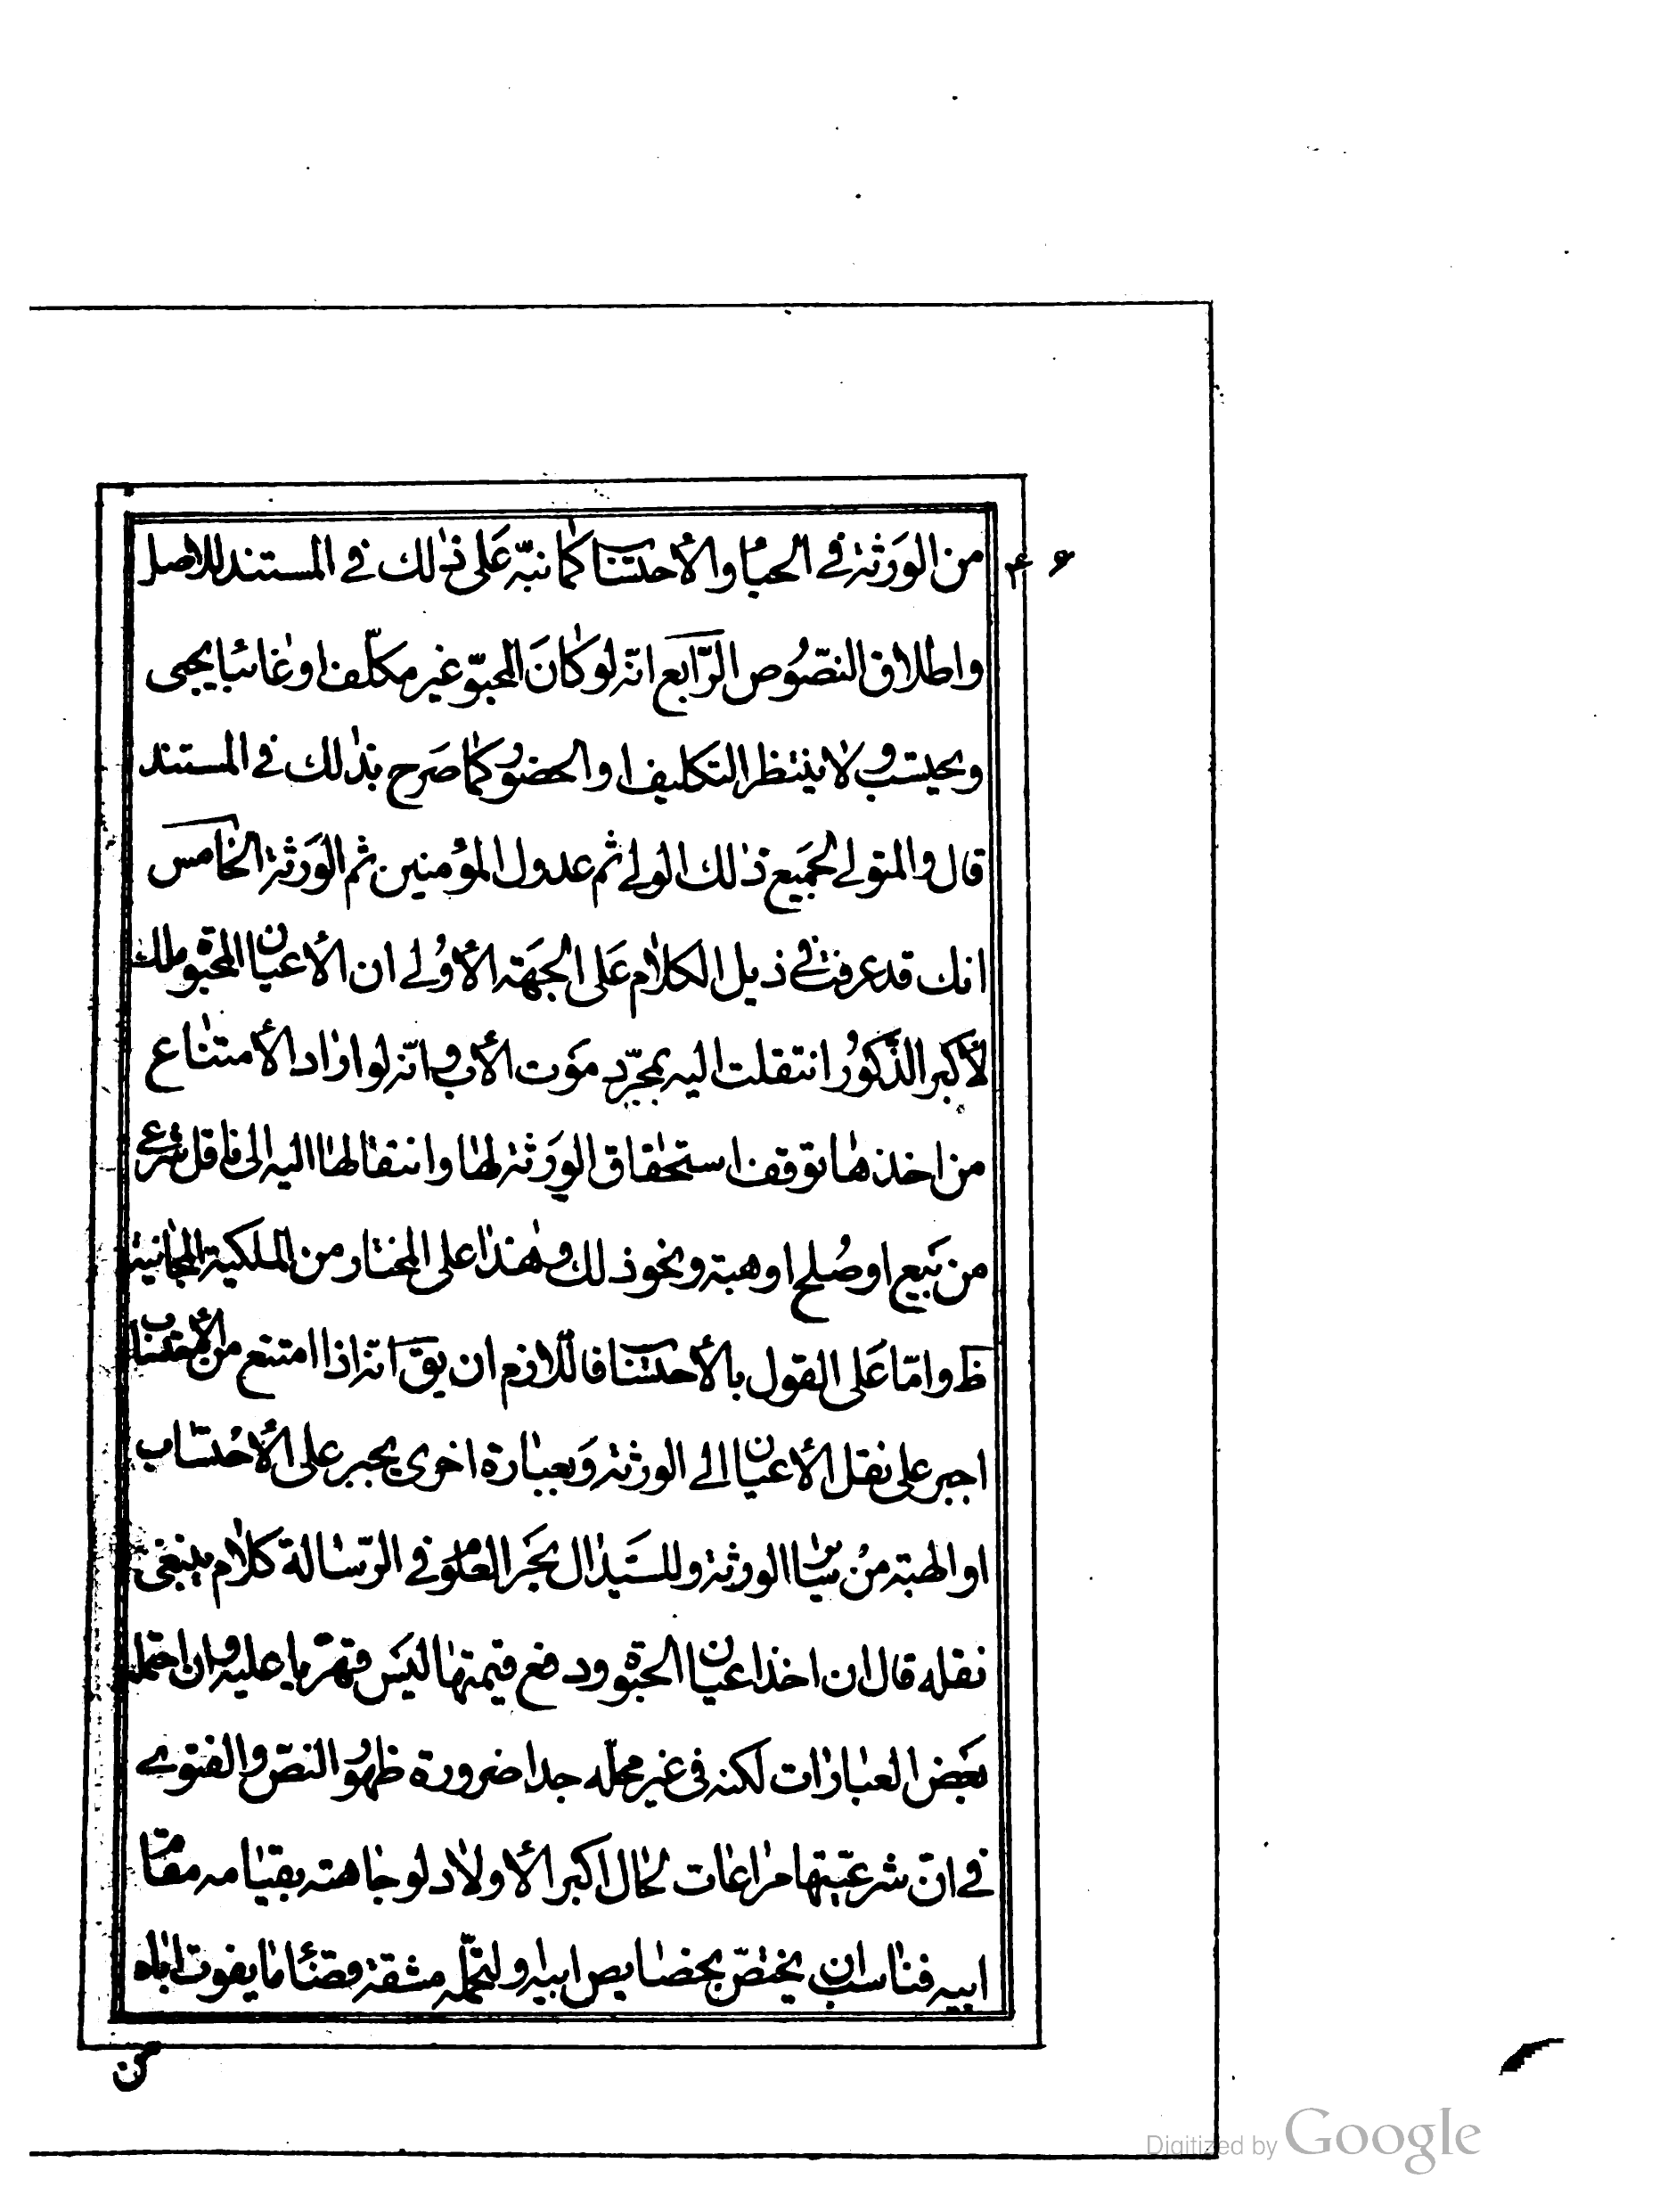 ۴۶
من الورثة في الحباء والأحتساب كما نبّه على ذلك في المستند للاصل
واطلاق النصوص الرّابع انه لو كان المحبوّ غير مكلّف او غائبا يحبى
ويحتسب ولا ينتظر التكليف او الحضور كما صرح بذلك في المستند
قال والمتولي لجميع ذلك الولي ثم عدول المؤمنين ثم الورثة الخامس
انك قد عرفت في ذيل الكلام على الجهة الأولى ان الأعيان المحبوة ملك
لأكبر الذكور انتقلت اليه بمجرّد موت الأب وانه لو اراد الأمتناع
من اخذها توقف استحقاق الورثة لها وانتقالها اليه الى ناقل شرعي
من بيع او صلح او هبة ونحو ذلك وهذا على المختار من الملكية المجانية
ظ واما على القول بالأحتساب فاللازم ان يق انه اذا امتنع من الأحتساب
اجبر على نقل الأعيان الى الورثة وبعبارة اخرى يجبر على الأحتساب
او الهبة من ساير الورثة وللسيد ال بحر العلوم في الرّسالة كلام ينبغي
نقله قال ان اخذ اعيان الحبوة ودفع قيمتها ليس قهريا عليه وان احتمله
بعض العبارات لكنه في غير محلّه جدا ضرورة ظهور النصّ والفتوى
في انّ شرعيّتها مراعات لحال اكبر الأولاد لوجاهته بقيامه مقام
ابيه فناسب ان يختصّ بخصايص ابيه ولتحمّله مشقة قضاء ما يفوت اباه
من
Digitized by Google